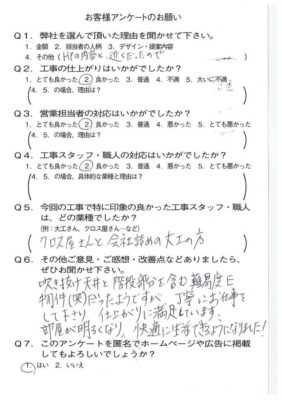 お客様アンケートのお願い
Q1. 弊社を選んで頂いた理由を聞かせて下さい。
1. 金額 2. 担当者の人柄 3. デザイン・提案内容
4. その他(HPの内容と 近くだったので
Q2. 工事の仕上がりはいかがでしたか?
1. とても良かった 2. 良かった 3. 普通 4. 不満 5. 大いに不満
(4. 5. の場合、理由は?
Q3. 営業担当者の対応はいかがでしたか?
1. とても良かった 2. 良かった 3. 普通 4. 悪かった 5. とても悪かった
(4. 5. の場合、理由は?
Q4. 工事スタッフ・職人の対応はいかがでしたか?
1. とても良かった 2. 良かった 3. 普通 4. 悪かった 5. とても悪かった
(4. 5. の場合、具体的な業種と理由は?
Q5. 今回の工事で特に印象の良かった工事スタッフ・職人
は、どの業種でしたか?
(例:大工さん、クロス屋さん…など)
クロス屋さんと会社詰めの大工の方
Q6. その他ご意見・ご感想・改善点などありましたら、
ぜひお聞かせ下さい。
吹き抜け天井と階段部分を含む難易度E
物件(笑)だったようですが、丁寧にお仕事を
して下さり、仕上がりに満足しています。
部屋が明るくなり、快適に生活できるようになりました!
Q7. このアンケートを匿名でホームページや広告に掲載
してもよろしいでしょうか?
1. はい 2. いいえ